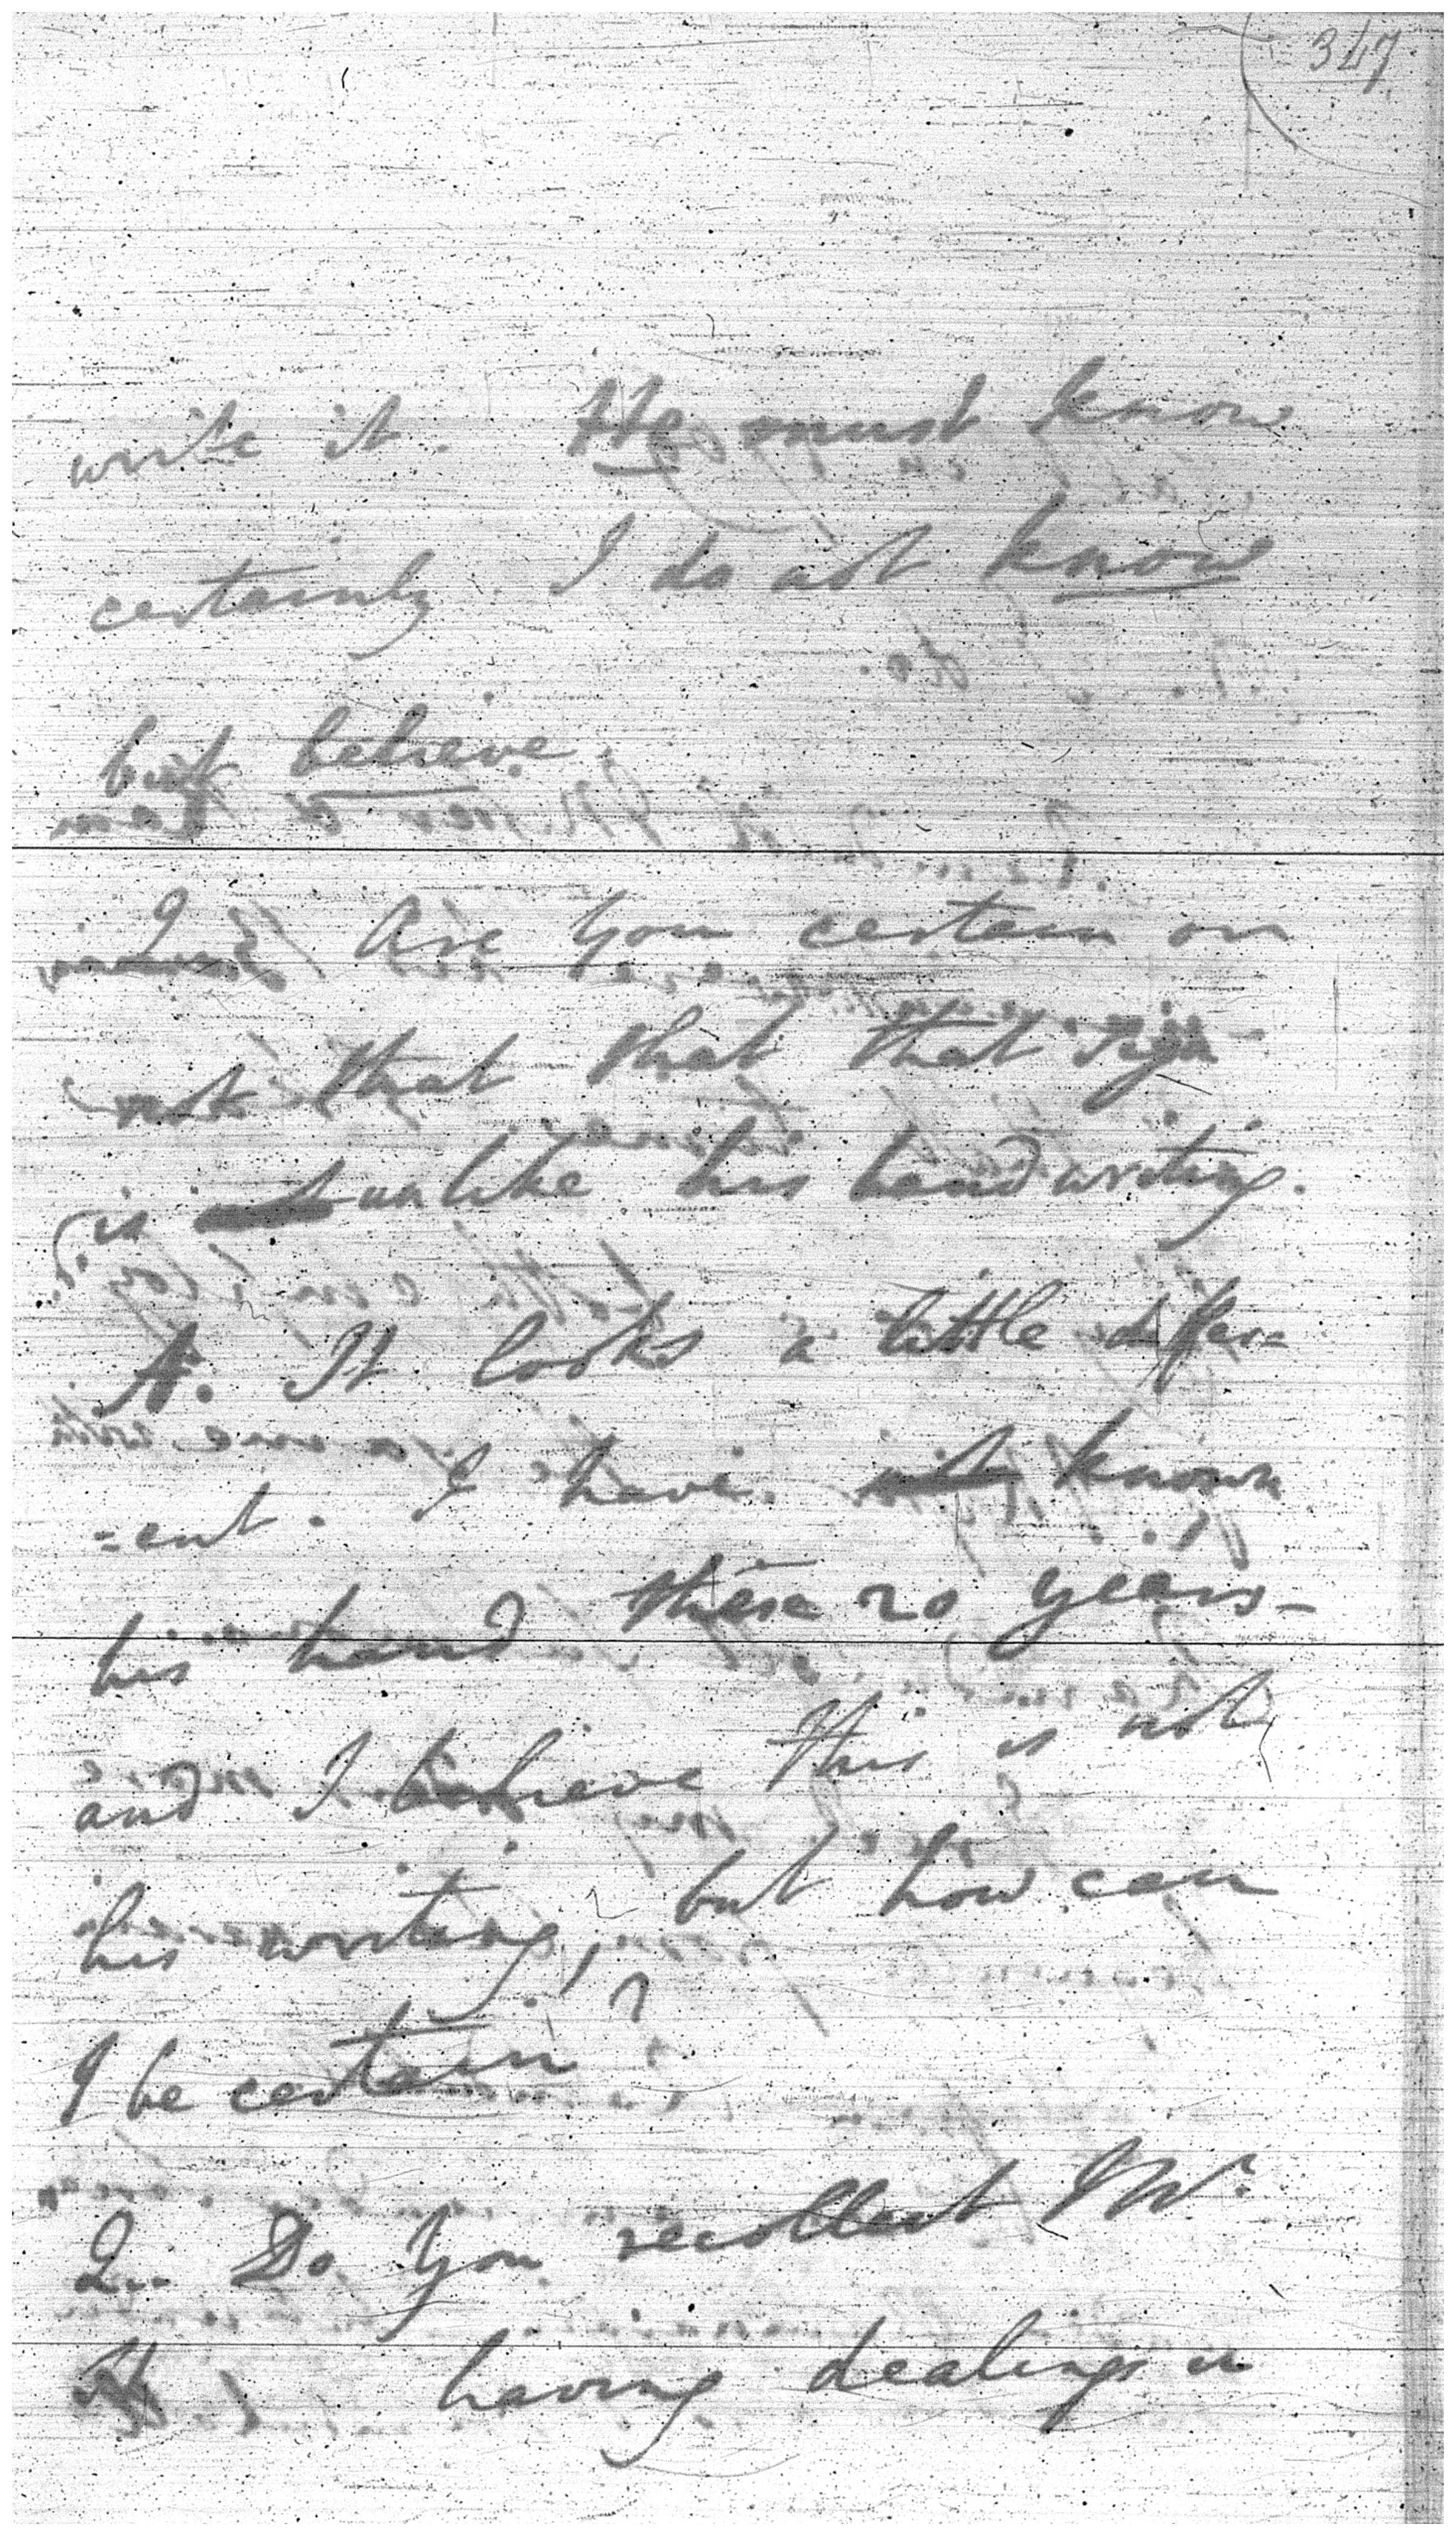 347.
write it. He must know
certainly. I do not know
but believe.
Q Are you certain or
not that that that sign
is unlike his handwriting.
A. It looks a little differ=
=ent. I have known
his hand these 20 years –
and I believe this is not
his writing, but how can
I be certain?
Q.. Do you recollect Mr.
having dealings in